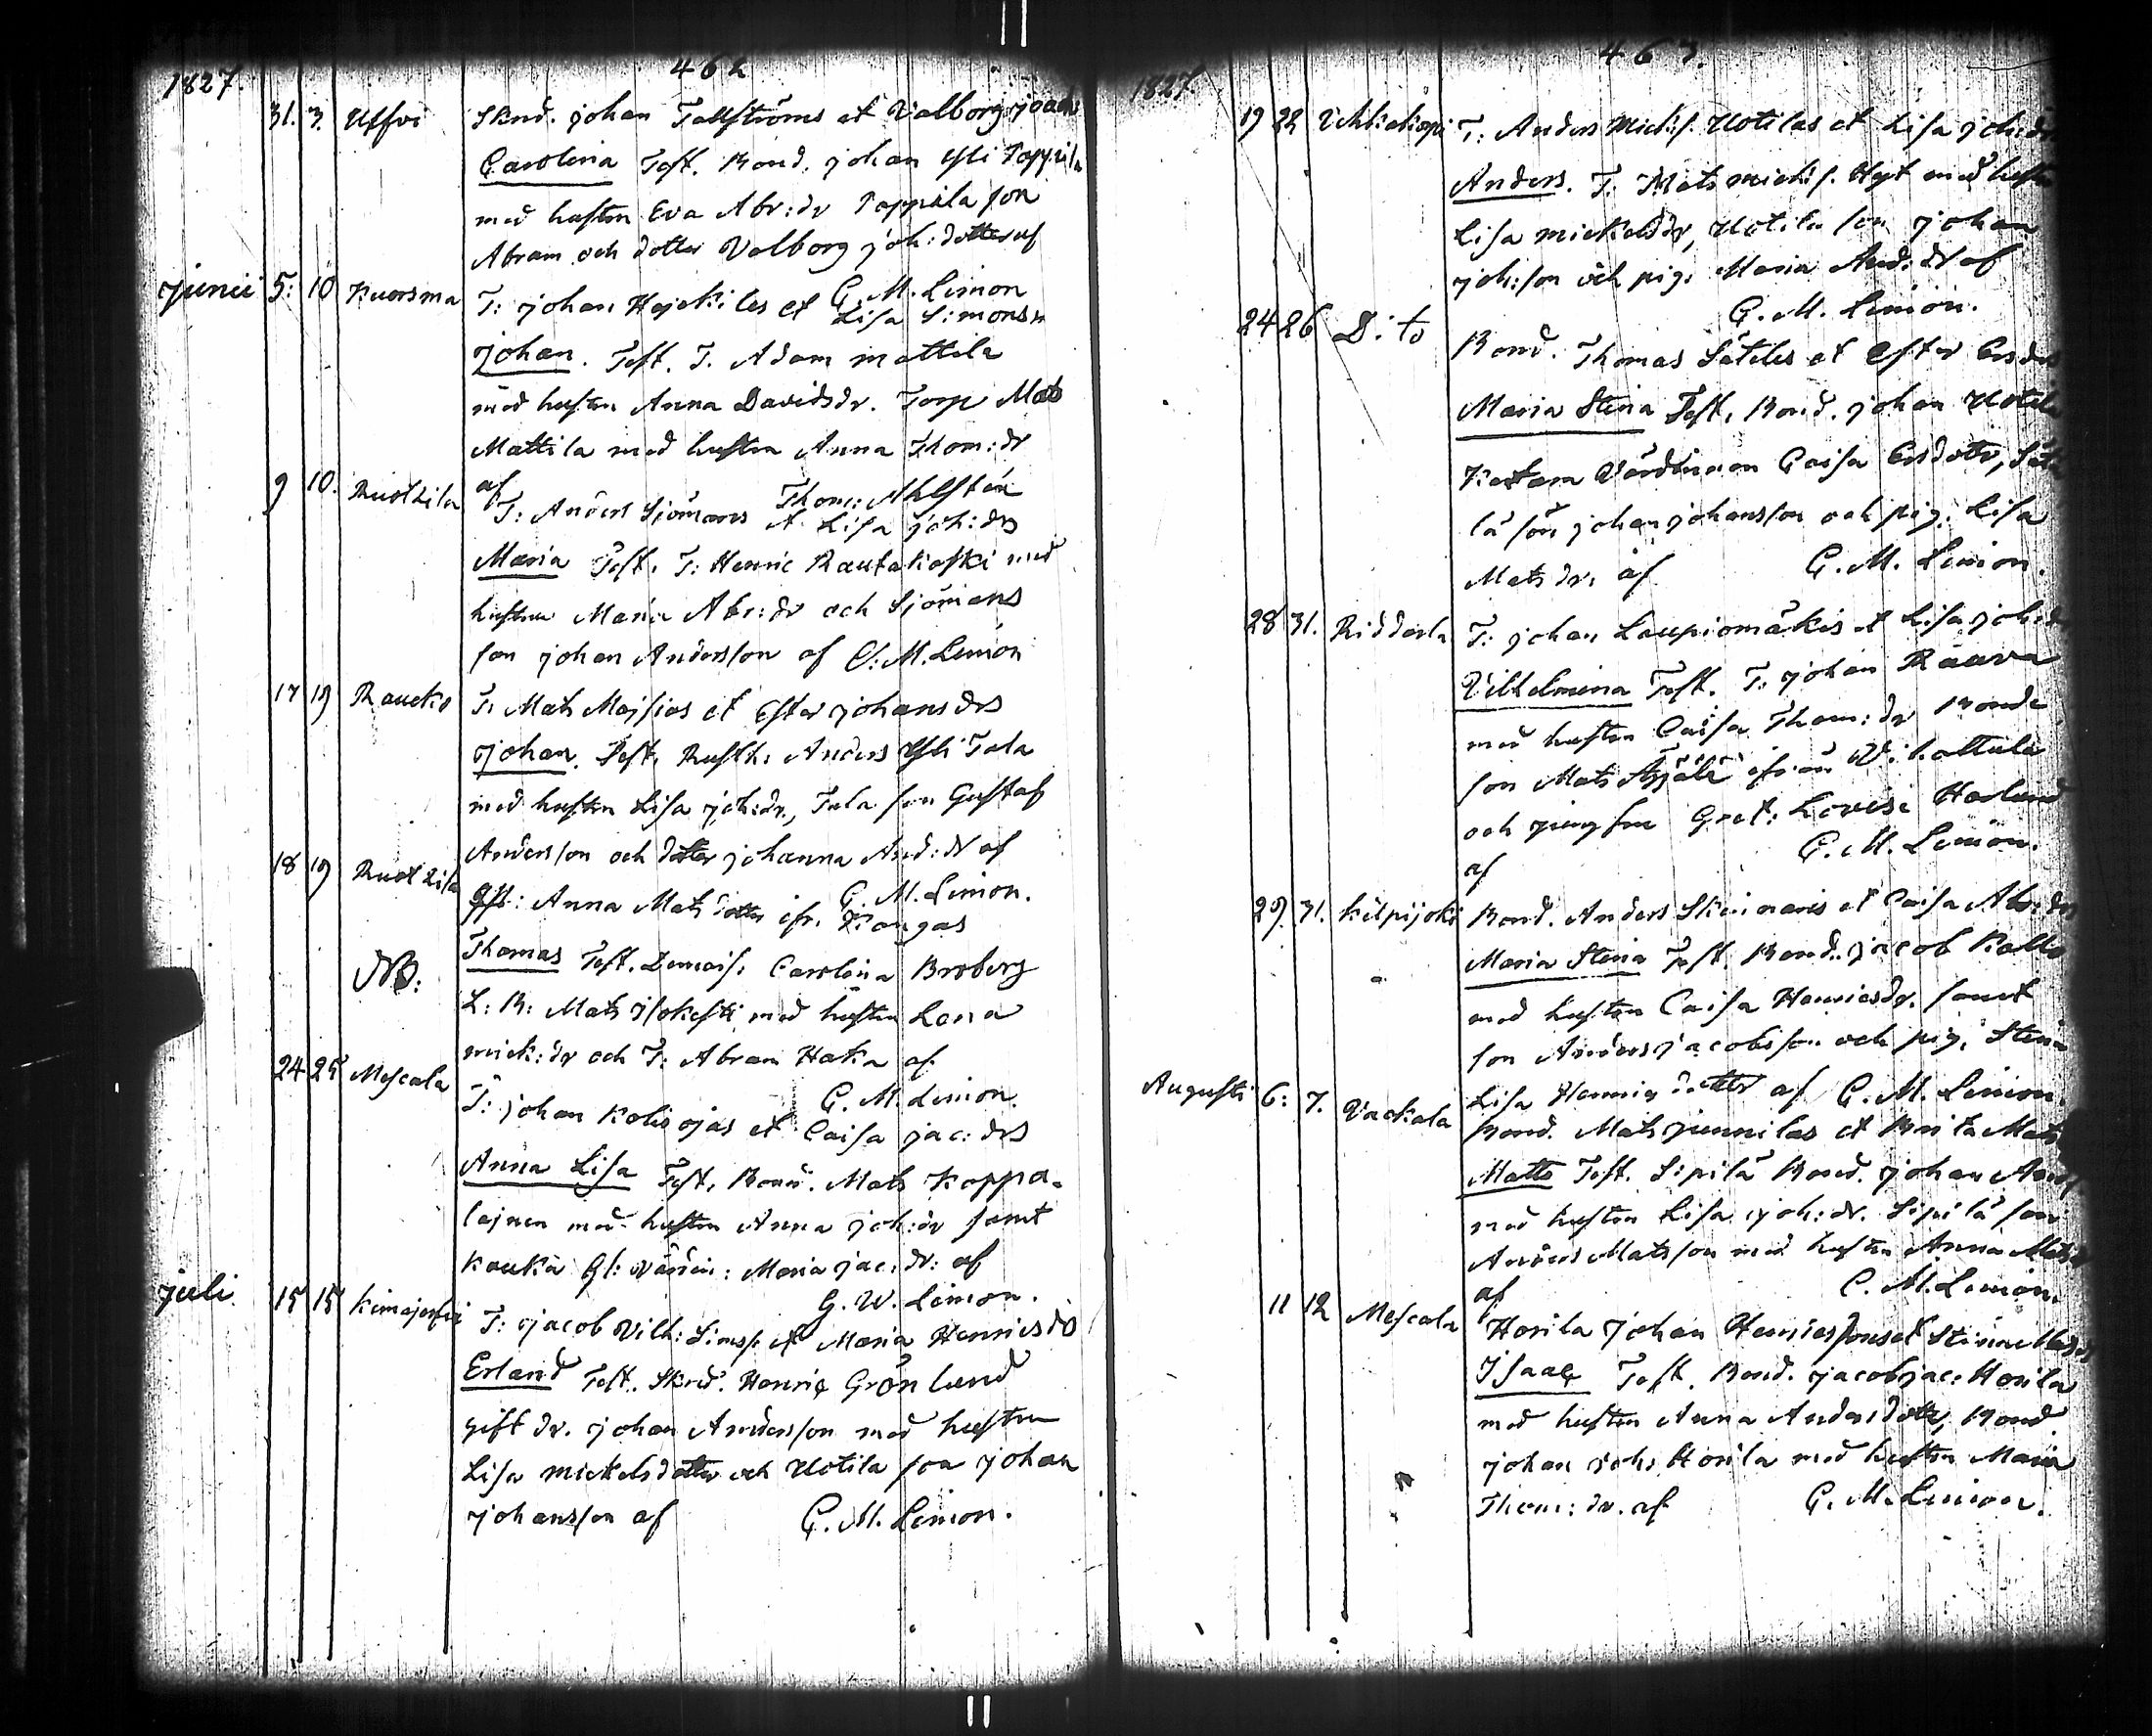 462
1827.
31. 3. Uffvi Skrd. johan Tallströms et Valborg joads
Carolina Test. Bond. johan Yli Pappila
med hustrn Eva Abr:dr Pappila son
Abram och dotter Valborg joh:dotter af
G. M. Limon
junii 5: 10 Kuorsma T: johan Hejckilas et Lisa Simonsn
johan. Test. T. Adam mattila
med hustrn Anna Davidsdr. Torp Mats
Mattila med hustrn Anna Thom:dr
af Thom: Ahlstén
9 10. Ruotzila T: Anders Sjömans et Lisa joh:drs
Maria Test. T: Henric Rautakoski med
hustrun Maria Abr:dr och Sjömans
son johan Andersson af G. M. Limón
17 19 Raucko T. Mats Majsias et Ester johansdrs
johan. Test. Rusth. Anders Yli Tala
med hustrn Lisa joh:dr, Tala son Gustaf
Andersson och dotter johanna And:dr af
G. M. Limon.
18 19 Ruotzila Gft: Anna Matsdotter ifr. Kangas
Thomas Test. Demois: Carolina Broberg
NB: L: B: Mats jsokesti med hustrn Lena
mick:dr och T: Abram Haka af
G. M. Limon.
24 25 Mescala T: johan Koliojas et Caisa jac:drs
Anna Lisa Test. Bond. Mats Koppa-
lajnen med hustrn Anna joh:dr samt
Kaukä Gl: värdin: Maria jac:dr: af
G. W. Limon.
juli. 15 15 Kimajerfvi T: jacob Vilh: Simss. et Maria Henricsdrs
Erland Test. Skrd. Henric Grönlund
gift dr. johan Andersson med hustrun
Lisa mickelsdotter och Uotila son johan
johansson af G. M. Limon.
463.
1827.
19 22 T: Anders Mickls. Uotilas et Lisa joh:dr
Anders. T: Mats mickls. Uget med hustru
Lisa mickelsdr, Uotila son johan
joh:son och pig. Maria And:dr af
G. M. Limon.
24 26 D:to Bond. Thomas Sätilas et Ester
Maria Stina Test. Bond. johan Uotila
Värdinnan Caisa
lä son johan johansson och pig. Lisa
Mats dr. af G. M. Limon.
28 31. Ridderla T: johan Laupiomäkis et Lisa joh:d
Vilhelmina Test. T: johan Råava
med hustrn Caisa Thom:dr Bonde
son Mats Äijälä ifrån
och jungfru Gret: Lovisa Haslund
af G. M. Limon.
29. 31. Kilpijoki Bond. Anders et Caisa Abr:drs
Maria Stina Test. Bond. jacob Kallo
med hustrn Caisa Henricsdr. samt
son Anders jacobsson och pig. Stina
Lisa Henricsdotter af G. M. Limon.
Augusti 6: 7. Vackala Bond. Mats junnilas et Brita Mats
Matts Test. Sipilä Bond. johan And
med hustrn Lisa joh:dr. Sipilä son
Anders Matsson med hustrn Anna Mats
af G. M. Limon.
11 12 Mescala Horila johan Henricssons et Stina Mats
Isaac Test. Bond. jacob jac: Horila
med hustrn Anna Andersdotter, Bond.
johan joh. Horila med hustrn Maria
Thom:dr. af G. M. Limon.